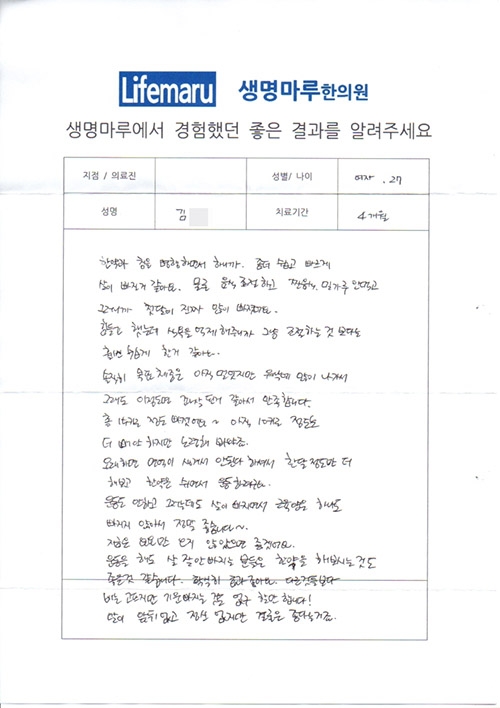 Lifemaru 생명마루한의원
생명마루에서 경험했던 좋은 결과를 알려주세요
지점 / 의료진 성별/ 나이 여자 . 27
성명 김 치료기간 4개월
한약과 침을 병행하면서 하니까. 좀더 쉽고 빠르게
살이 빠진거 같아요. 물론 음식 조절하고 짠음식, 밀가루 안먹고
그러니까 첫달이 진짜 많이 빠졌어요.
힘들고 했는데 식욕을 억제해주니까 그냥 조절하는 것 보다는
훨씬 쉽게 한거 같아요.
솔직히 목표 체중은 아직 멀었지만 워낙에 많이 나가서
그래도 이정도면 효과 본거 같아서 만족합니다.
총 15키로 정도 빠졌어요~ 아직 10키로 정도는
더 빼야 하지만 노력해 봐야죠.
오래하면 면역이 생겨서 안된다 하셔서 한달 정도만 더
해보고 한약은 쉬면서 운동하려구요.
운동도 안하고 그랬는데도 살이 빠지면서 근육량은 하나도
빠지지 않아서 정말 좋습니다~.
지금은 요요만 오지 않았으면 좋겠어요.
운동을 해도 살 잘 안빠지는 분들은 한약을 해보시는 것도
좋은것 같습니다. 확실히 효과 좋아요. 다른것들보다
비논 고프지만 기운 빠지는 일도 없구 힘만 합니다!
말이 앞뒤 없고 정신 없지만 결론은 좋다는거죠.